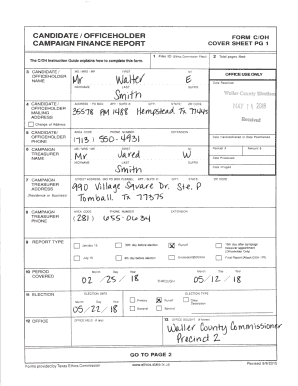 CANDIDATE / OFFICEHOLDER
CAMPAIGN FINANCE REPORT
FORM C/OH
COVER SHEET PG 1
The C/OH Instruction Guide explains how to complete this form.
1 Filer ID (Ethics Commission Filers)
2 Total pages filed:
3 CANDIDATE / OFFICEHOLDER NAME
MS / MRS / MR FIRST MI
Mr Walter E
NICKNAME LAST SUFFIX
Smith
OFFICE USE ONLY
Date Received
Waller County Elections
MAY 14 2018
Received
4 CANDIDATE / OFFICEHOLDER MAILING ADDRESS
Change of Address
ADDRESS / PO BOX; APT / SUITE #; CITY; STATE; ZIP CODE
35578 FM 1488 Hempstead Tx 77445
5 CANDIDATE / OFFICEHOLDER PHONE
AREA CODE PHONE NUMBER EXTENSION
(713) 550-4931
Date Hand-delivered or Date Postmarked
6 CAMPAIGN TREASURER NAME
MS / MRS / MR FIRST MI
Mr Jared W
NICKNAME LAST SUFFIX
Smith
Receipt # Amount $
Date Processed
Date Imaged
7 CAMPAIGN TREASURER ADDRESS
(Residence or Business)
STREET ADDRESS (NO PO BOX PLEASE); APT / SUITE #; CITY; STATE; ZIP CODE
990 Village Square Dr. Ste. P
Tomball, Tx 77375
8 CAMPAIGN TREASURER PHONE
AREA CODE PHONE NUMBER EXTENSION
(281) 655-0634
9 REPORT TYPE
January 15
30th day before election
Runoff
15th day after campaign treasurer appointment (Officeholder Only)
July 15
8th day before election
Exceeded $500 limit
Final Report (Attach C/OH - FR)
10 PERIOD COVERED
Month Day Year
02 / 25 / 18
THROUGH
Month Day Year
05 / 12 / 18
11 ELECTION
ELECTION DATE
Month Day Year
05 / 22 / 18
ELECTION TYPE
Primary
Runoff
Other Description
General
Special
12 OFFICE
OFFICE HELD (if any)
13 OFFICE SOUGHT (if known)
Waller County Commissioner
Precinct 2
GO TO PAGE 2
Forms provided by Texas Ethics Commission
www.ethics.state.tx.us
Revised 9/8/2015